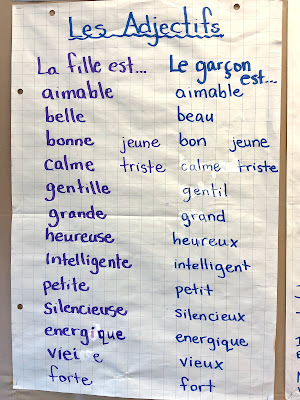 Les Adjectifs
La fille est... Le garçon est...
aimable aimable
belle beau
bonne jeune bon jeune
calme triste calme triste
gentille gentil
grande grand
heureuse heureux
intelligente intelligent
petite petit
silencieuse silencieux
energique energique
vieux
forte fort